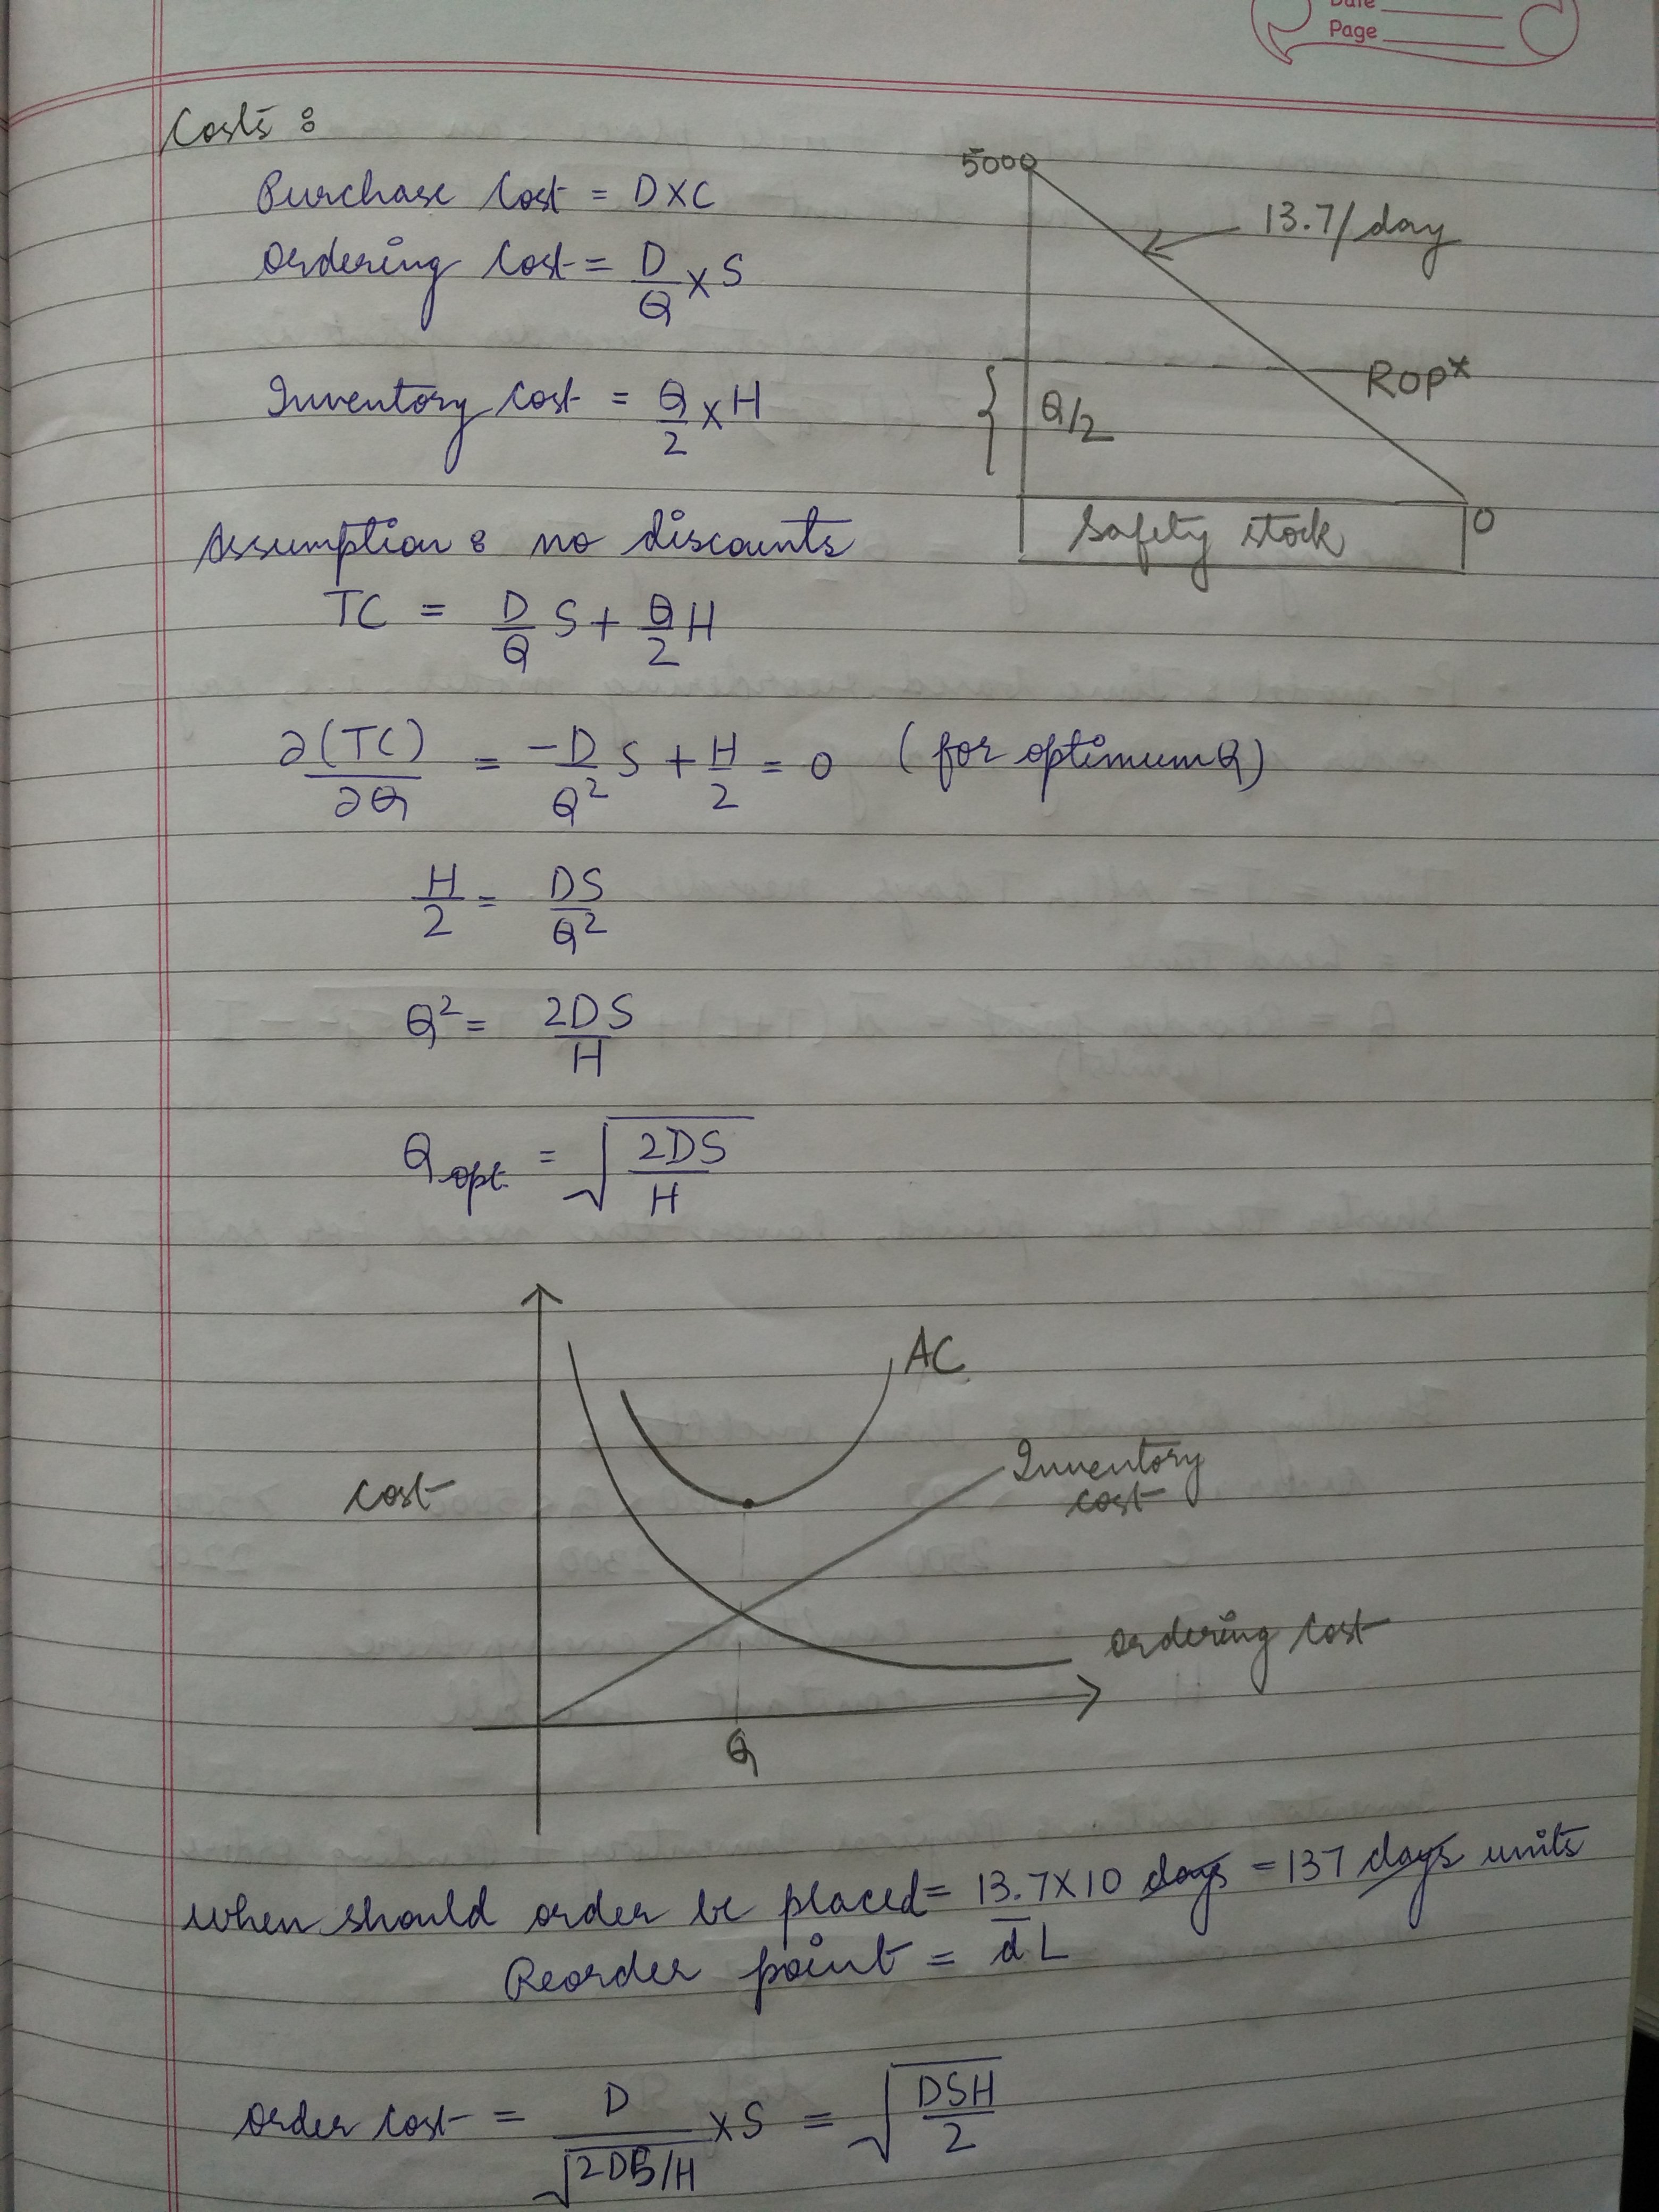 Date
Page
Costs :
Purchase Cost = D×C
Ordering Cost = D/Q × S
Inventory Cost = Q/2 × H
5000
13.7/day
ROP*
Q/2
Safety stock
0
Assumption : no discounts
TC = D/Q S + Q/2 H
∂(TC)/∂Q = -D/Q² S + H/2 = 0 (for optimum Q)
H/2 = DS/Q²
Q² = 2DS/H
Q opt = √(2DS/H)
AC
Cost
Inventory
cost
Ordering Cost
Q
When should order be placed = 13.7×10 days = 137 days units
Reorder point = d̅ L
Order Cost = D/√(2DS/H) × S = √(DSH/2)